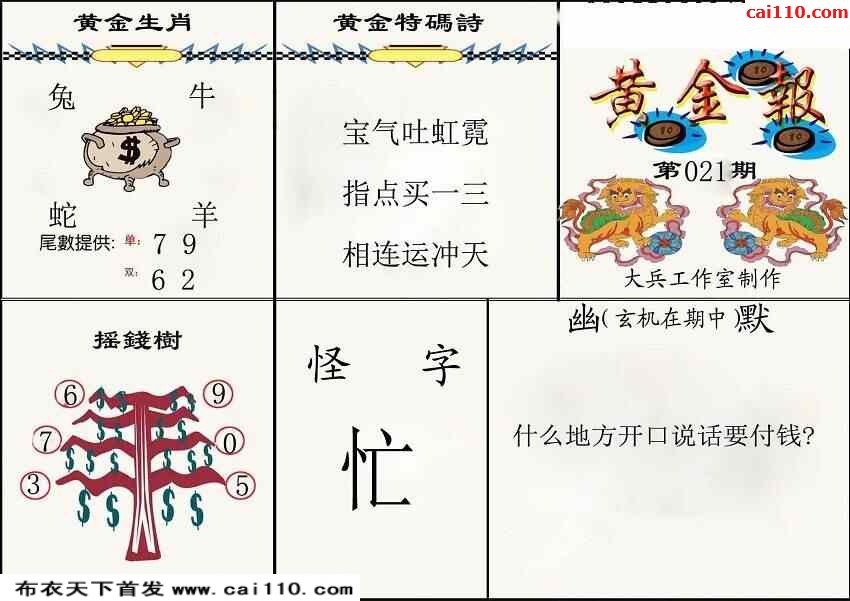 cai110.com
黄金生肖
兔 牛
$
蛇 羊
尾數提供: 单: 7 9
双: 6 2
黄金特碼詩
宝气吐虹霓
指点买一三
相连运冲天
黄金報
10
10
10
第021期
大兵工作室制作
摇錢樹
6 9
7 0
3 5
$ $ $ $
$ $ $ $
$ $ $ $
$ $ $ $
怪 字
忙
幽(玄机在期中)默
什么地方开口说话要付钱?
布衣天下首发 www.cai110.com